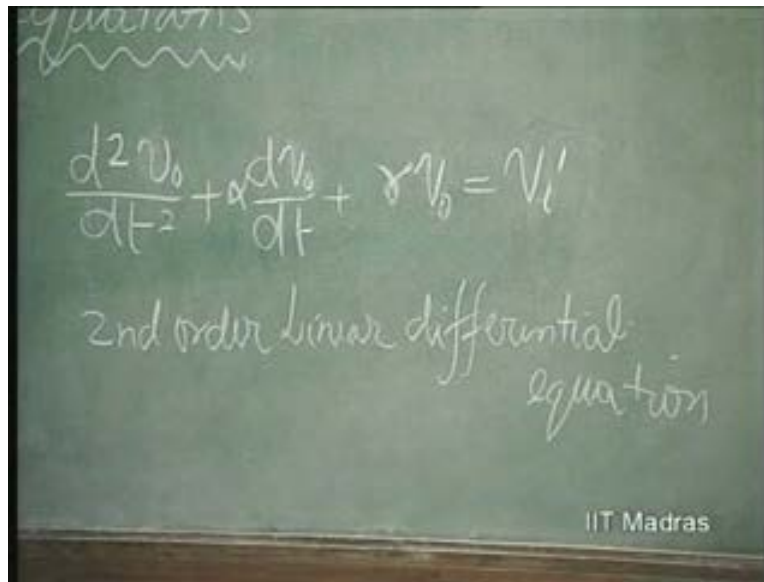 equations
d²v₀/dt² + α dv₀/dt + γv₀ = vᵢ'
2nd order Linear differential
equation
IIT Madras